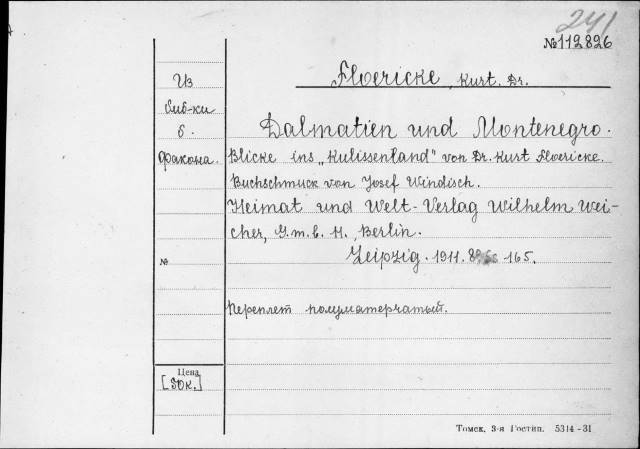 241
№112826
Floericke, Kurt. Dr.
Из
биб-ки
б.
Факона.
Dalmatien und Montenegro.
Blicke ins „Kulissenland" von Dr. Kurt Floericke.
Buchschmuck von Josef Windisch.
Heimat und Welt-Verlag Wilhelm Wei-
cher, G.m.b.H., Berlin.
Leipzig. 1911. 8° 165.
№
Переплет полуматерчатый.
Цена
[30к.]
Томск, 3-я Гостип. 5314-31